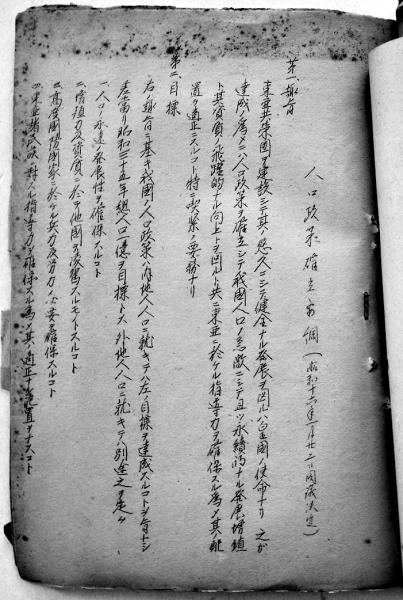 人口政策確立要綱（昭和十六年一月廿二日閣議決定）
第一、趣旨
東亜共栄圏ヲ建設シテ其ノ悠久ニシテ健全ナル発展ヲ図ルハ皇国ノ使命ナリ　之ガ
達成ノ為メニハ人口政策ヲ確立シテ我国人口ノ急激ニシテ且ツ永続的ナル発展増殖
ト其資質ノ飛躍的ナル向上トヲ図ルト共ニ東亜ニ於ケル指導力ヲ確保スル為メ其配
置ヲ適正ニスルコト特ニ喫緊ノ要務ナリ
第二、目標
右ノ趣旨ニ基キ我国ノ人口政策ハ内地人人口ニ就キテハ左ノ目標ヲ達成スルコトヲ旨トシ
差当リ昭和三十五年総人口一億ヲ目標トス　外地人人口ニ就キテハ別途之ヲ定ム
一、人口ノ永遠ノ発展性ヲ確保スルコト
二、増殖力及資質ニ於テ他国ヲ凌駕スルモトスルコト
三、高度国防国家ニ於ケル兵力及労力ノ必要ヲ確保スルコト
四、東亜諸民族ニ対スル指導力ヲ確保スル為メ其ノ適正ナル配置ヲナスコト